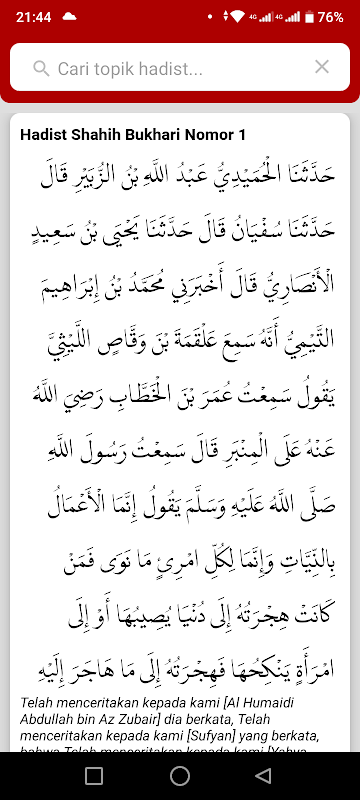 21:44
4G 4G 76%
Cari topik hadist...
Hadist Shahih Bukhari Nomor 1
حَدَّثَنَا الْحُمَيْدِيُّ عَبْدُ اللَّهِ بْنُ الزُّبَيْرِ قَالَ
حَدَّثَنَا سُفْيَانُ قَالَ حَدَّثَنَا يَحْيَى بْنُ سَعِيدٍ
الْأَنْصَارِيُّ قَالَ أَخْبَرَنِي مُحَمَّدُ بْنُ إِبْرَاهِيمَ
التَّيْمِيُّ أَنَّهُ سَمِعَ عَلْقَمَةَ بْنَ وَقَّاصٍ اللَّيْثِيَّ
يَقُولُ سَمِعْتُ عُمَرَ بْنَ الْخَطَّابِ رَضِيَ اللَّهُ
عَنْهُ عَلَى الْمِنْبَرِ قَالَ سَمِعْتُ رَسُولَ اللَّهِ
صَلَّى اللَّهُ عَلَيْهِ وَسَلَّمَ يَقُولُ إِنَّمَا الْأَعْمَالُ
بِالنِّيَّاتِ وَإِنَّمَا لِكُلِّ امْرِئٍ مَا نَوَى فَمَنْ
كَانَتْ هِجْرَتُهُ إِلَى دُنْيَا يُصِيبُهَا أَوْ إِلَى
امْرَأَةٍ يَنْكِحُهَا فَهِجْرَتُهُ إِلَى مَا هَاجَرَ إِلَيْهِ
Telah menceritakan kepada kami [Al Humaidi
Abdullah bin Az Zubair] dia berkata, Telah
menceritakan kepada kami [Sufyan] yang berkata,
bahwa Telah menceritakan kepada kami [Yahya